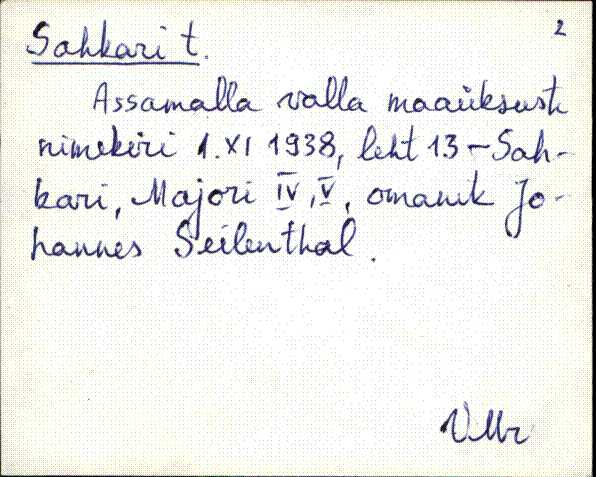 2
Sahkari t.
Assamalla valla maaüksuste
nimekiri 1. XI 1938, leht 13 – Sah-
kari, Majori IV, V, omanik Jo-
hannes Seilenthal.
VMr